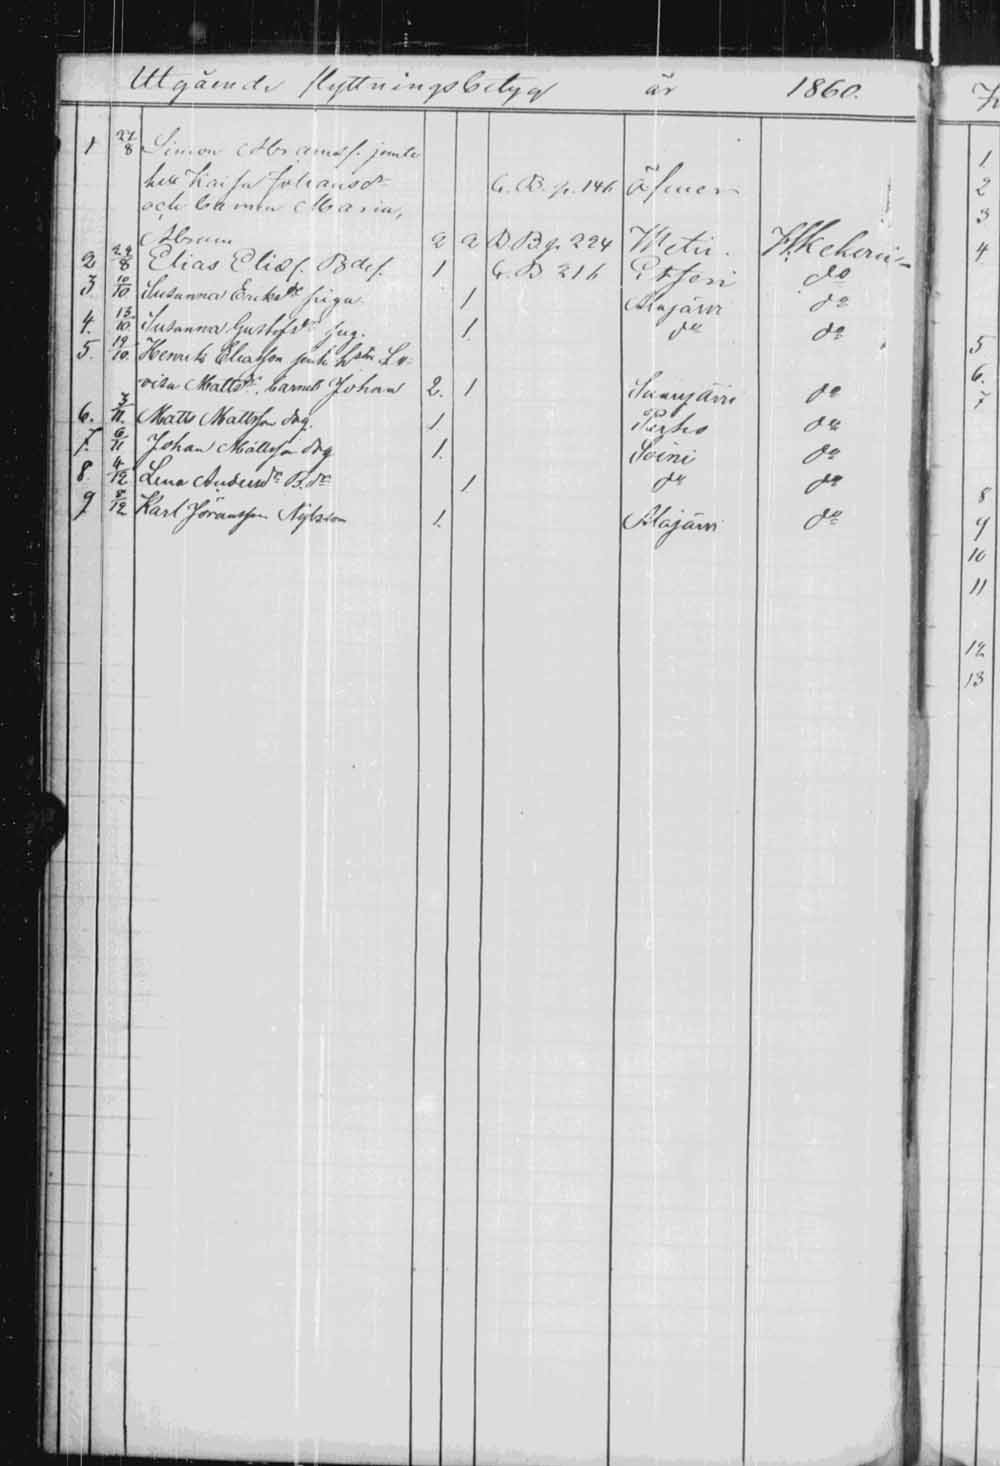 Utgående flyttningsbetyg år 1860.
1 27/8 Simon Abramsf. jemte
hu Kaisa Johansdr C. B. p. 146
och barnen Maria,
Abram 2 2 B B p. 224
2 28/8 Elias Eliasf. Bdes. 1 C. B 216 Etseri do
3 10/10 Susanna Eriksdr piga 1 Alajärvi do
4. 13/10. Susanna Gustafsdr pig. 1. do do
5. 19/10. Henrik Eliasson jemte hstr Lo-
visa Mattsdr, barnet Johan 2. 1 do
6. 3/11. Matts Mattsson drg. 1. Perho do
7. 6/11 Johan Mattsson drg 1. Soini do
8. 4/12 Lena Andersdr B.dr 1. do do
9 8/12 Karl Göransson 1. Alajärvi do
1
2
3
4
5
6.
7
8
9
10
11
12
13